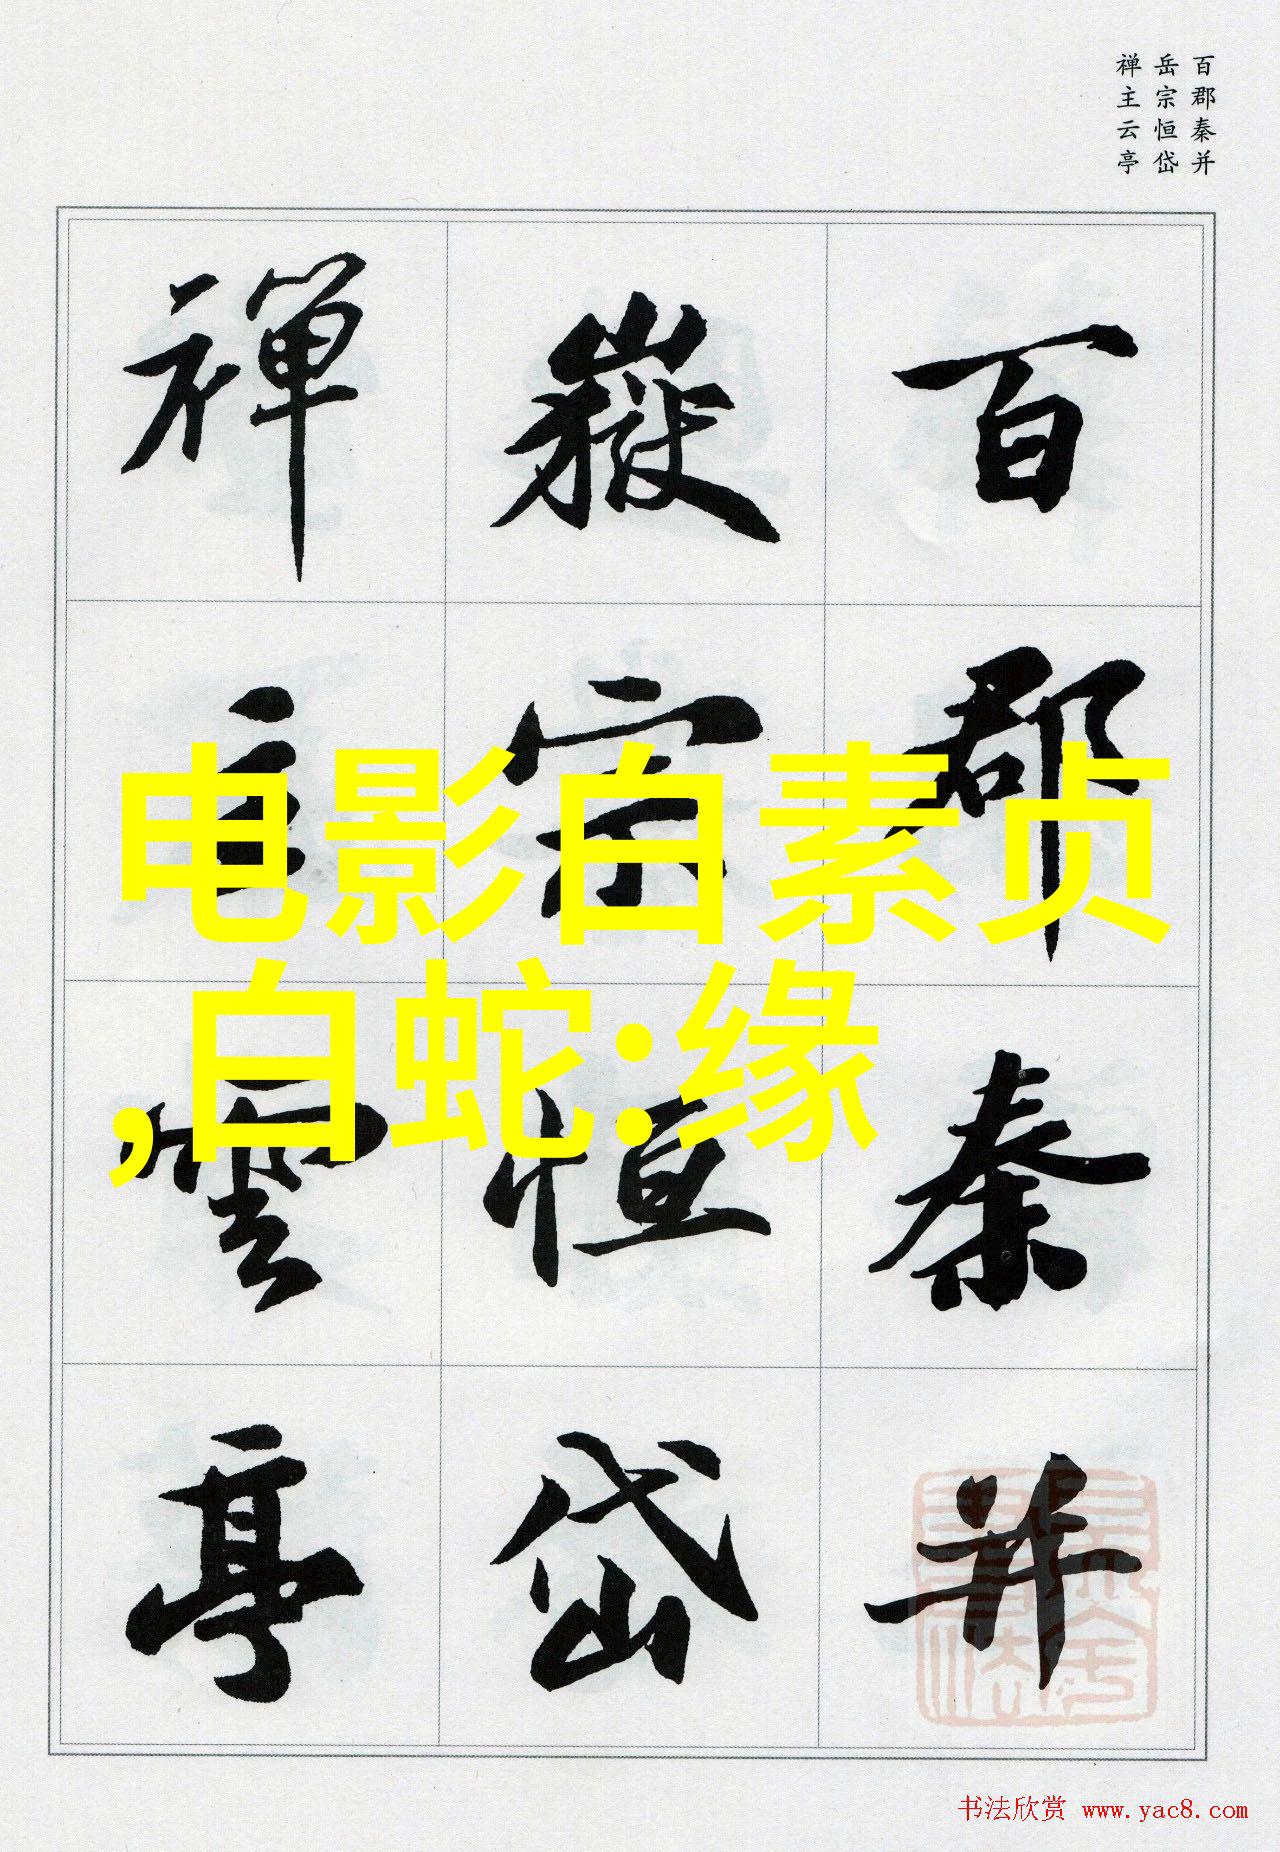 百郡秦并
岳宗恒岱
禅主云亭
百郡秦并
嶽宗恒岱
禅主雲亭
电影白素贞
,白蛇:缘
书法欣赏 www.yac8.com